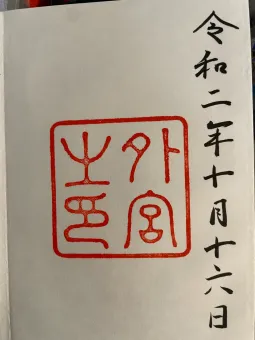 令和二年十月十六日
外宮
之印